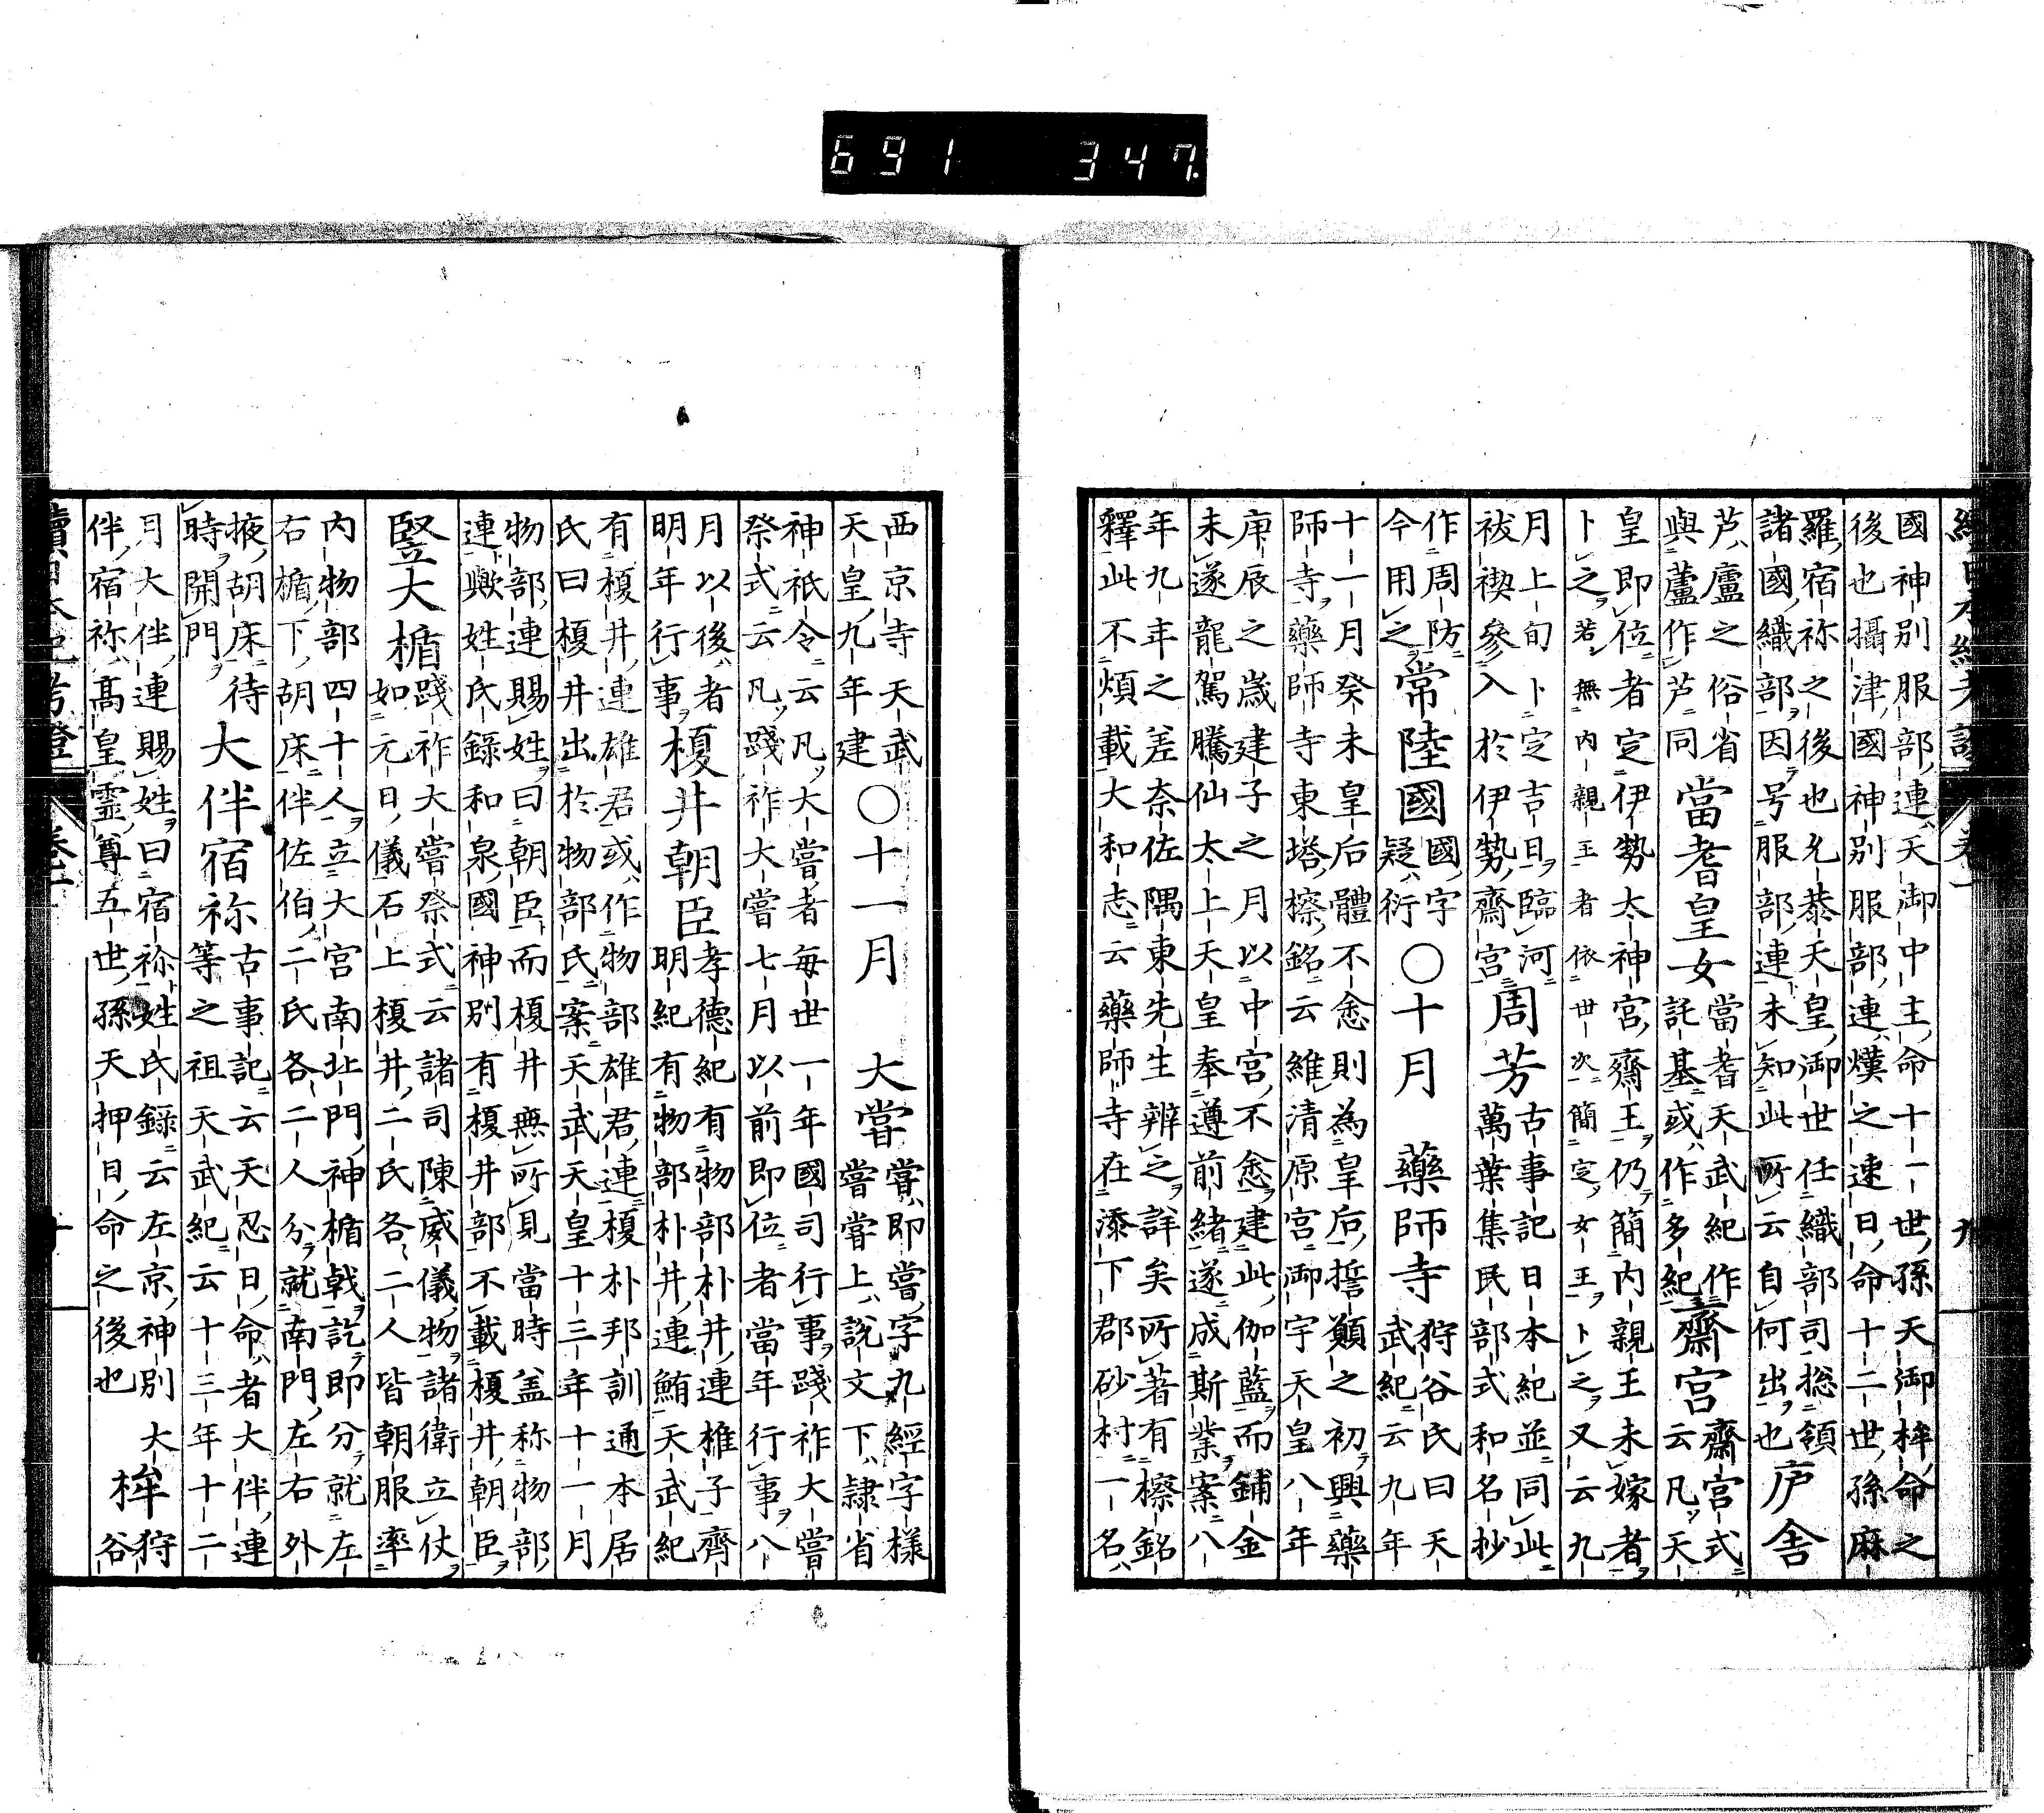 國神別服部連天御中主命十一世孫天御桙命之
後也攝津國神別服部連熯之速日命十二世孫麻
羅宿祢之後也允恭天皇御世任織部司揔領
諸國織部因号服部連未知此所云自何出也
庐舎
芦廬之俗省
與蘆作芦同
當耆皇女
當耆天武紀作
託基或作多紀
齋宮
齋宮式
云凡天
皇即位者定伊勢太神宮齋王仍簡内親王未嫁者
卜之若無内親王者依世次簡定女王卜之又云九
月上旬卜定吉日臨河
祓禊參入於伊勢齋宮
周芳
古事記日本紀並同此
萬葉集民部式和名抄
作周防
今用之
常陸國
國字
疑衍
○十月 藥師寺
狩谷氏曰天
武紀云九年
十一月癸未皇后體不悆則為皇后誓願之初興藥
師寺藥師寺東塔檫銘云維清原宮御宇天皇八年
庚辰之歳建子之月以中宮不悆建此伽藍而鋪金
未遂龍駕騰仙太上天皇奉遵前緒遂成斯業案八
年九年之差奈佐隅東先生辨之詳矣所著有檫銘
釋此不煩載大和志云藥師寺在添下郡砂村一名
西京寺天武
天皇九年建
○十一月 大甞
甞即嘗字九經字様
嘗甞上說文下隷省
神祇令云凡大嘗者每世一年國司行事踐祚大嘗
祭式云凡踐祚大嘗七月以前即位者當年行事八
月以後者
明年行事
榎井朝臣
孝德紀有物部朴井連椎子齊
明紀有物部朴井連鮪天武紀
有榎井連雄君或作物部雄君連榎朴邦訓通本居
氏曰榎井出於物部氏案天武天皇十三年十一月
物部連賜姓曰朝臣而榎井無所見當時盖称物部
連歟姓氏錄和泉國神別有榎井部不載榎井朝臣
竪大楯
踐祚大嘗祭式云諸司陳威儀物諸衛立仗
如元日儀石上榎井二氏各二人皆朝服率
内物部四十人立大宮南北門神楯戟訖即分就左
右楯下胡床伴佐伯二氏各二人分就南門左右外
掖胡床待
時開門
大伴宿祢
古事記云天忍日命者大伴連
等之祖天武紀云十三年十二
月大伴連賜姓曰宿祢姓氏錄云左京神別大
伴宿祢髙皇霊尊五世孫天押日命之後也
桙
狩
谷
續日本紀考證 卷一